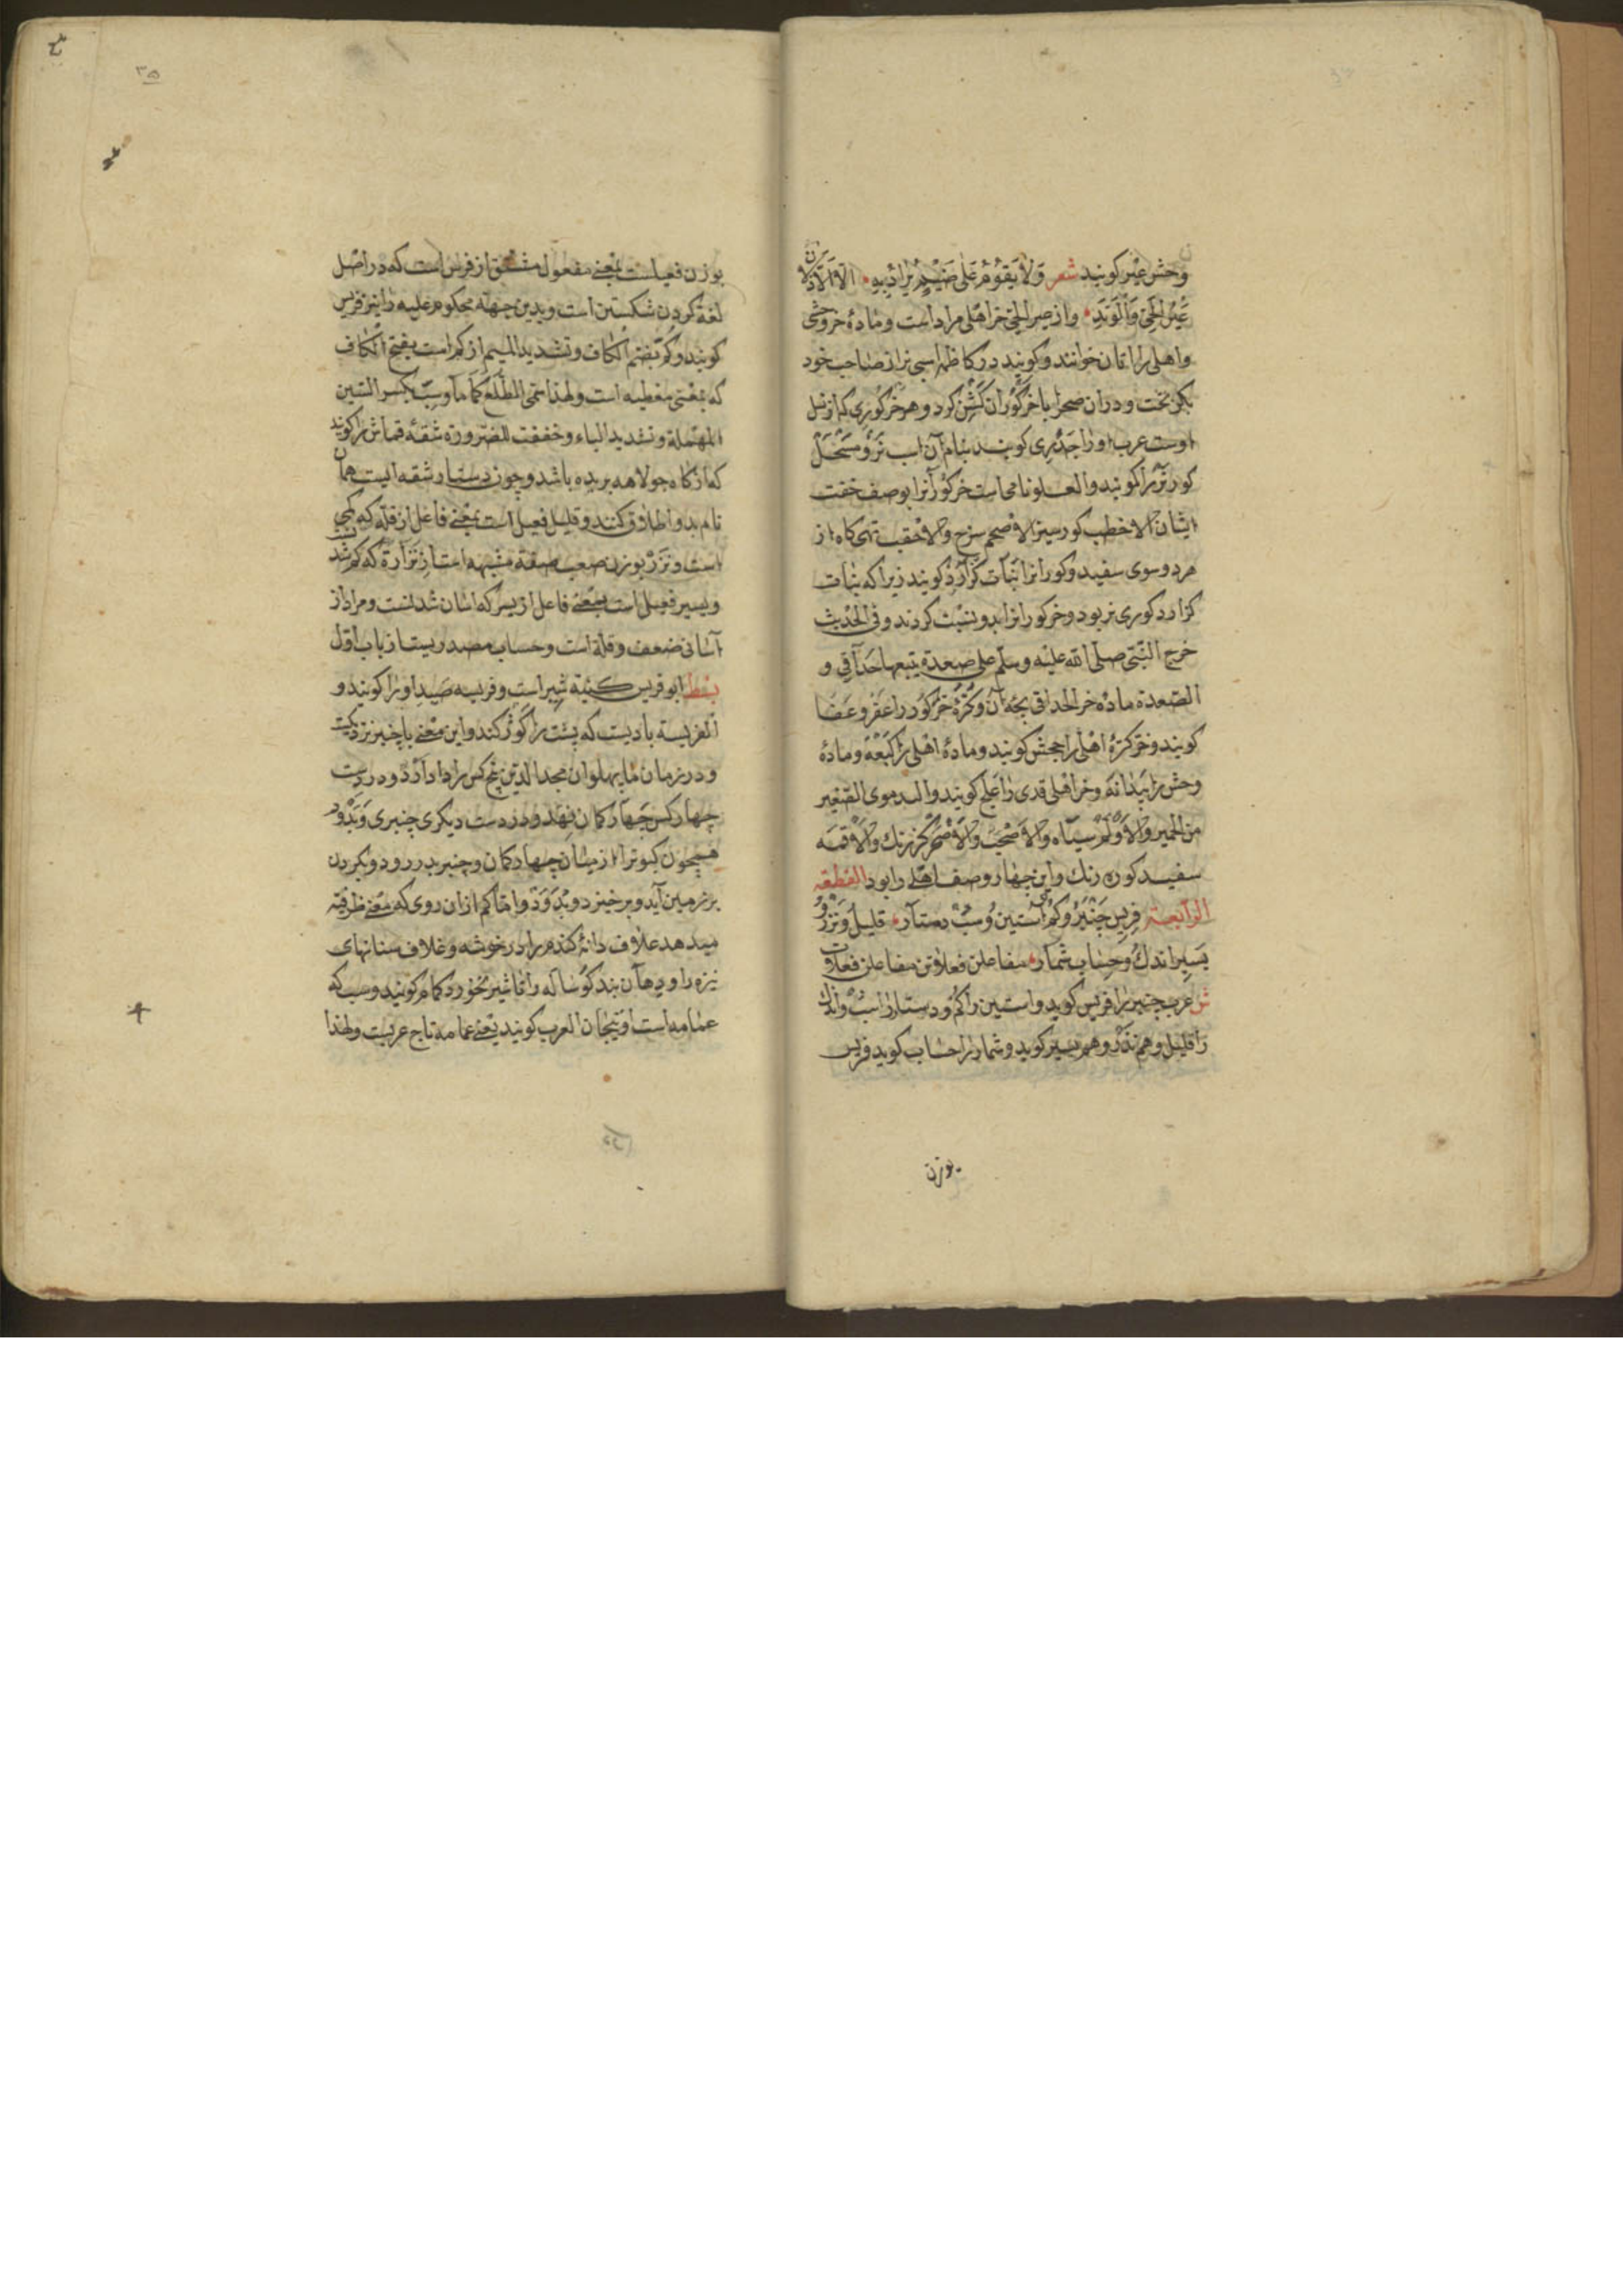 وحش عَیْر کویند شعر وَلَا یَقُوْمُ عَلٰی ضَیْمٍ یُرَادُ بِهِ الّا الاَذَلَّانِ
عَیْرُ الْحَیِّ وَالْوَتَدِ واز عیر الحی خر اهلی مراد است و مادهٔ خر وحشی
واهلی را اتان خوانند و کویند در کاظمه اسبی نر از صاحب خود
بکریخت و در ان صحرا با خر کوران کُشْن کرد و هر خر کوری که از نسل
اوست عرب اورا اَخْدَرِی کویند بنام آن اسب نَرْ و مِسْحَلْ
کور نر را کویند والعلو نام خاست خر کور آنرا بوصف خفت
ایشان الاخطب کور سبز الاصحم سرخ والاحقب تهی کاه از
مرد وسوی سفید و کورانرا نَبَات کُزارد کویند زیرا که نبات
کزارد کوری نر بود و خر کورانرا بدو نسبت کردند وفی الحدیث
خرج النبی صلی الله علیه وسلم علی صعدة یتبعها حذاقی و
الصعدة ماده خر الحذاقی بچه آن و کُرَّهٔ خَرْ کُور را عَفْر و عَفَا
کویند و خر کرهٔ اهلی را جحش کویند و مادهٔ اهلی را کَبْعَه و مادهٔ
وحش را بَیْدَانَه و خر اهلی قدی را عِلْج کویند والدموی الصغیر
من الحمیر والادْلَم سیاه والاصحب والاصحر کرزنك والاقمه
سفید کوره رنك و این چهار وصف اهلی را بود القطعة
الرابعة فَرِیس چَنْبَر و کُم آستین و سِبّ دستار قلیل و نَزْر و
یسیر اندك و حساب شمار مفاعلن فعلاتن مفاعلن فعلات
ش عرب چنبر را فریس کوید و استین را کُم و دستار را سب و اندك
را قلیل و هم نذر و هم یسیر کوید و شمار را حساب کوید فریس
بوزن
بوزن فعیلست بمعنی مفعول مشتق از فرس است که در اصل
لغة کردن شکستن است و بدین جهة محکوم علیه را نیز فریس
کویند و کُم بضم الکاف و تشدید المیم از کم است بفتح الکاف
که بمعنی تغطیه است ولهذا سمی الطلع کما ما و سِبّ بکسر السین
المهملة و تشدید الباء و خففت للضرورة شقهٔ قماش را کویند
که از کاه جولاهه بریده باشد و چون دستار شقه ایست همان
نام بدو اطلاق کنند و قلیل فعیل است بمعنی فاعل از قلة که کمی
است و نزر بوزن صعب صفة مشبهه است از نزارة که کم شدن
و یسیر فعیل است بمعنی فاعل از یسر که اسان شدنست و مراد از
آسانی ضعف و قلة است و حساب مصدریست از باب اول
بقط ابو فریس کنیة شیر است و فریسه صید اورا کویند و
الفریسة بادیست که پشت را کوژ کند و این معنی با چنبر نزدیکست
و در زمان ما پهلوان مجد الدین پنج کس را دادآرد و در دست
چهار کس چهار کمان نهد و در دست دیکری چنبری وَبَدْوَد
همچون کبوتر از میان چهار کمان و چنبر بدر رود و بکردن
بر زمین آید و بر خیزد و بُدَوَد و امّا کم از ان روی که معنی ظرفیة
میدهد غلاف دانهٔ کندم را در خوشه و غلاف سنانهای
نیزه را و دهان بند کوساله را تا شیر نخورد کمام کویند و سب که
عمامه است او تیجان العرب کویند یعنی عمامه تاج عربست ولهذا